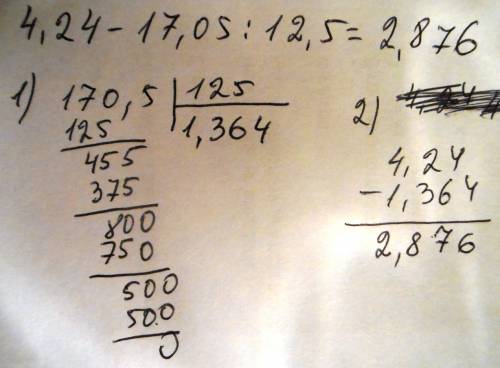 4,24 - 17,05 : 12,5 = 2,876
1) 170,5 | 125
125
1,364
455
375
800
750
500
500
0
2)
4,24
- 1,364
2,876